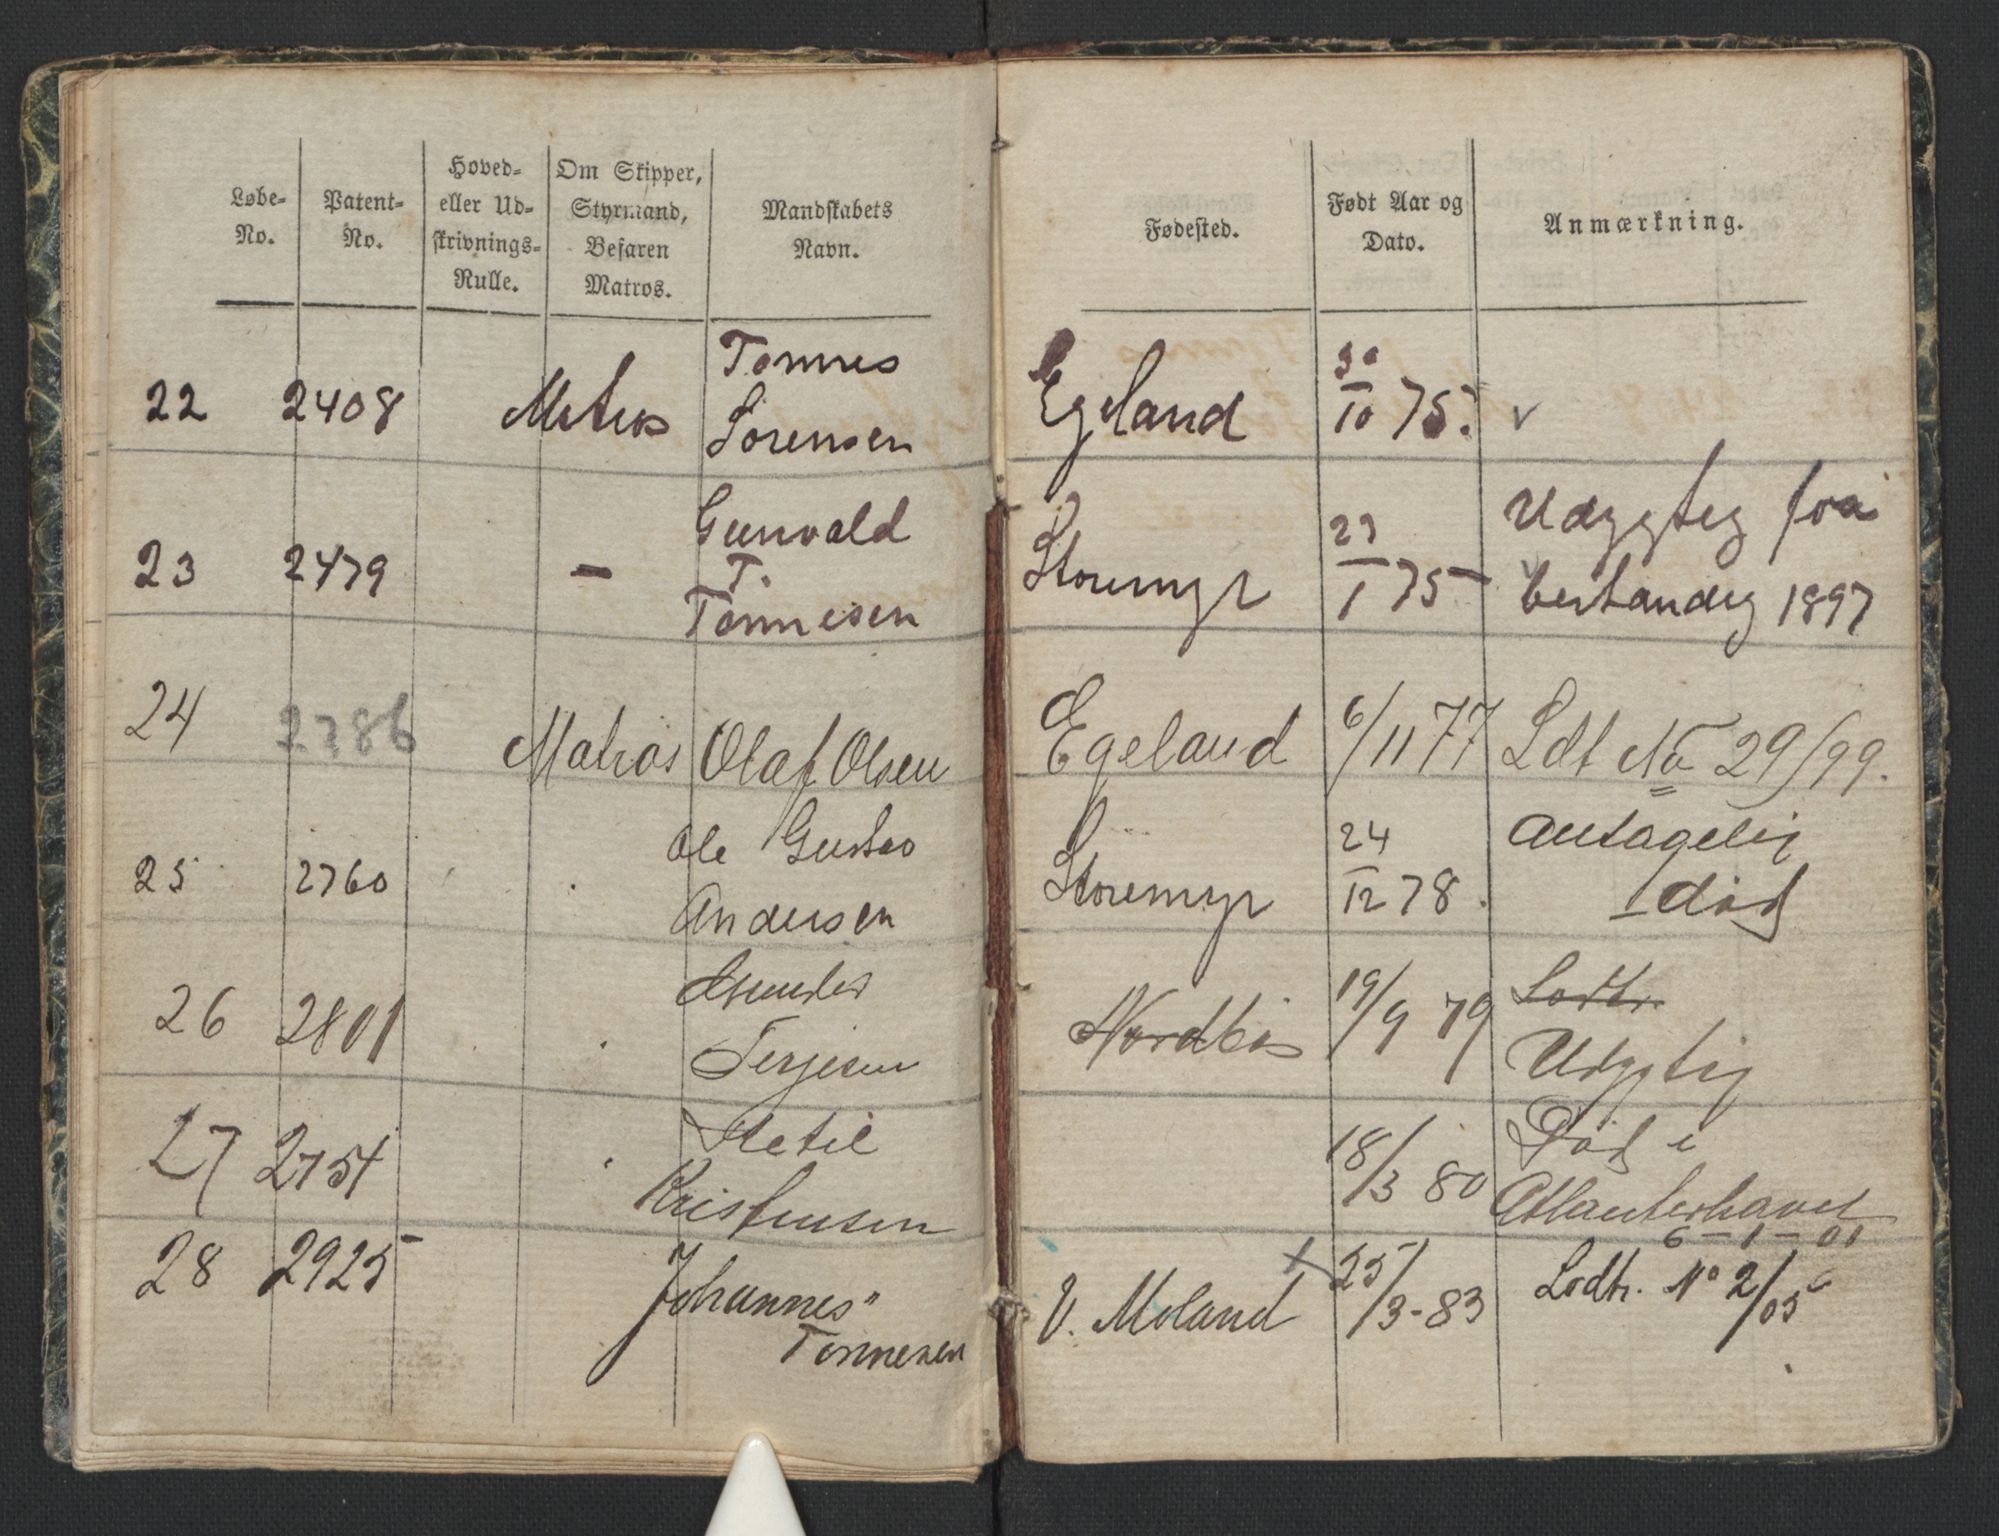 Løbe-
No.
Patent-
No.
Hoved-
eller Ud-
skrivnings-
Rulle.
Om Skipper,
Styrmand,
Befaren
Matros.
Mandskabets
Navn.
Fødested.
Født Aar og
Dato.
Anmærkning.
22 2408 Matros Tønnes
Sørensen
Egeland 30/10 75. v
23 2479 — Gunvald
T.
Tønnesen
Storemyr 23/1 75 Udygtig fra
1897
24 2786 Matros Olaf Olsen
Egeland 6/11 77 Ldt No 29/99.
25 2760 Ole Gustav
Andersen
Storemyr 24/12 78. antagelig
død
26 2801
Terjesen
Nordbø 19/9 79 Lodtr.
Udygtig
27 2754 Ketil
Kristensen
18/3 80 Død i
Atlanterhavet
6-1-01
28 2925 Johannes
Tønnesen
V. Moland 25/3-83 Lodtr. No 2/05